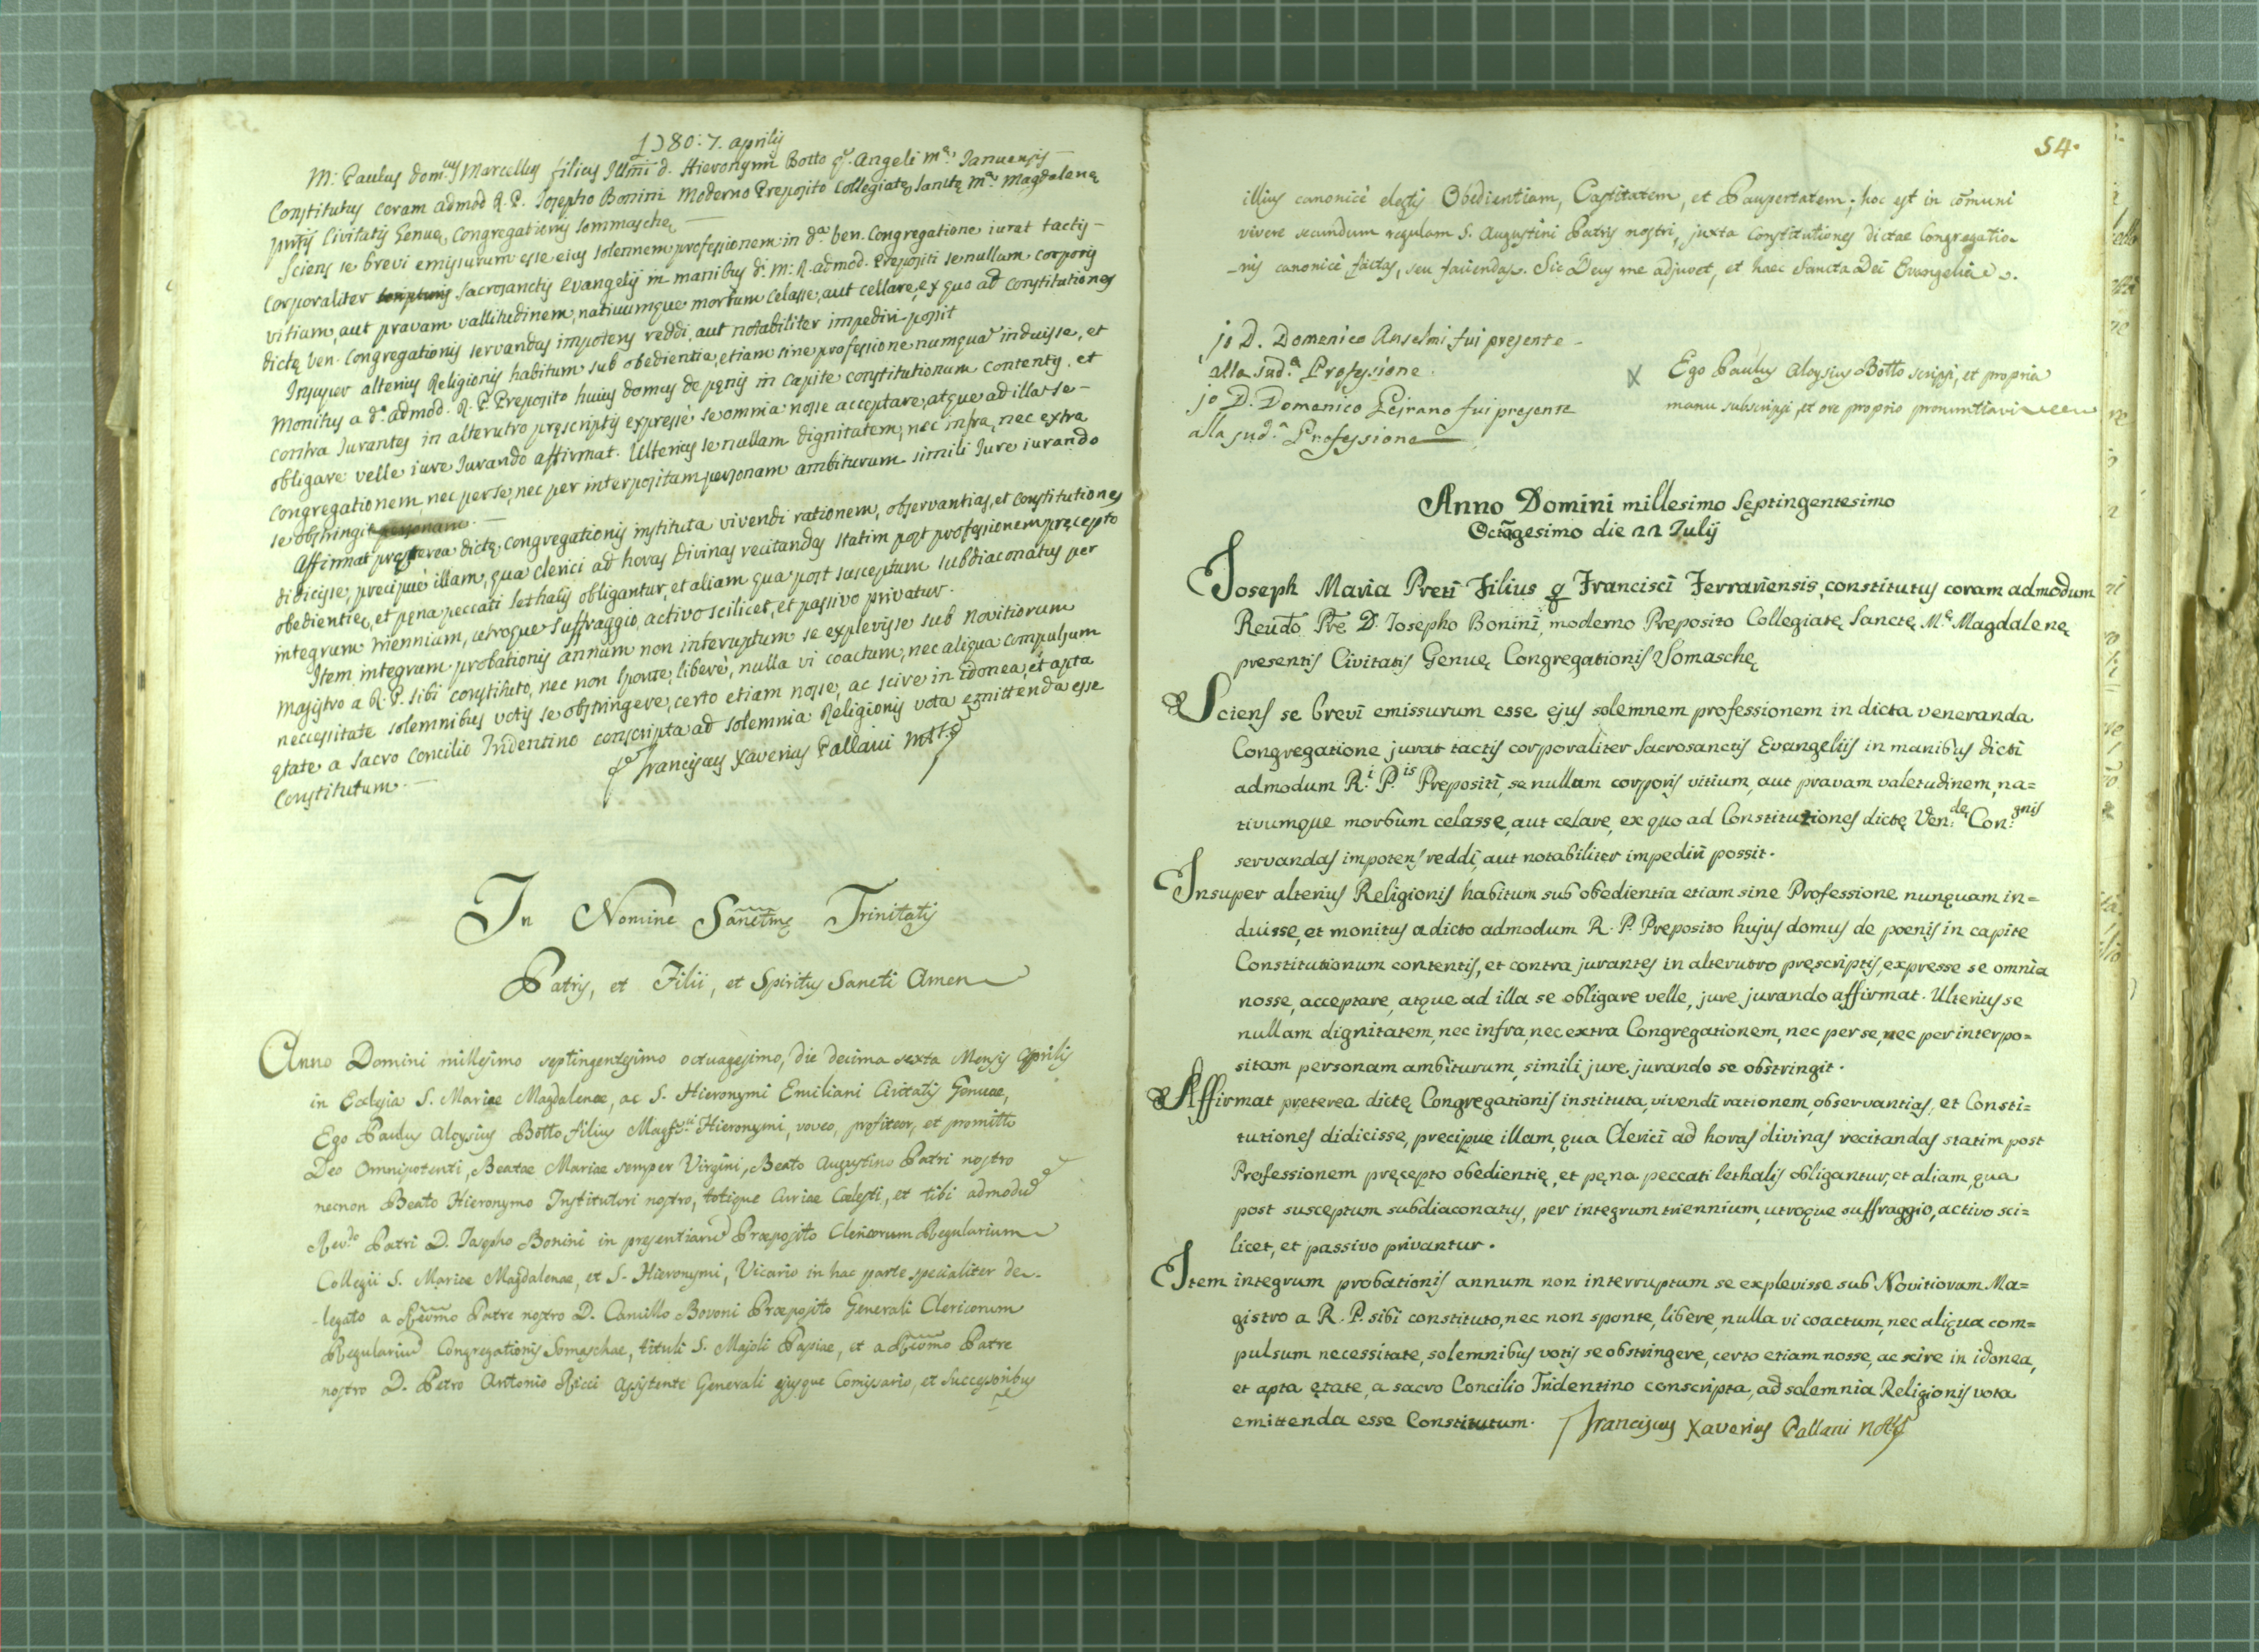 1780: 7. aprilis
M: Paulus Dom.cus Marcellus filius Illmi d. Hieronymi Botto q. Angeli m.a Januensis
Constitutus coram admod R. P. Iosepho Bonini Moderno Preposito Collegiatę Sanctę M.ae Magdalenę
pntis Civitatis Genuę Congregationis Sommaschę
Sciens se brevi emissurum esse eius solennem professionem in d.a ven. Congregatione iurat tactis
corporaliter sacrosanctis Evangelijs in manibus d. M: R. admod. Prepositi se nullam corporis
vitium, aut pravam vallitudinem, nativumque morbum celasse, aut cellare, ex quo ad constitutiones
dictę Ven. Congregationis servandas impotens reddi, aut notabiliter impediri possit
Insuper alterius Religionis habitum sub obedientia, etiam sine professione numqua induisse, et
Monitus a d.o admod. R. P. Preposito huius domus de pęnis in capite constitutionum contentis, et
contra Iurantes in alterutro pręscriptis expressè se omnia nosse acceptare, atque ad illa se
obligare velle iure Iurando affirmat. Ulterius se nullam dignitatem, nec infra, nec extra
congregationem, nec per se, nec per interpositam personam ambiturum simili Iure iurando
se obstringit
Affirmat pręterea dictę congregationis instituta vivendi rationem, observantias, et constitutiones
didicisse, precipuè illam, qua clerici ad horas Divinas recitandas statim post professionem pręcepto
obedientię, et pęna peccati lethalis obligantur, et aliam qua post susceptum subdiaconatus per
integrum triennium, utroque suffraggio, activo scilicet, et passivo privatur.
Item integrum probationis annum non interuptum se explevisse sub Novitiorum
Magistro a R. P. sibi constituto, nec non sponte, liberè, nulla vi coactum, nec aliqua compulsum
neccessitate solemnibus votis se obstringere, certo etiam nosse, ac scire in idonea, et apta
ętate a sacro Concilio Tridentino conscripta ad solemnia Religionis vota emittenda esse
Constitutum.
Franciscus Xaverius Pallavi
In Nomine Sanctmę Trinitatis
Patris, et Filii, et Spiritus Sancti Amen
Anno Domini millesimo septingentesimo octuagesimo, die decima sexta Mensis Aprilis
in Eclesia S. Mariae Magdalenae, ac S. Hieronymi Emiliani Civitatis Genuae,
Ego Paulus Aloysius Botto filius Magfci Hieronymi, voveo, profiteor, et promitto
Deo Omnipotenti, Beatae Mariae semper Virgini, Beato Augustino Patri nostro
necnon Beato Hieronymo Institutori nostro, totique Curiae Caelesti, et tibi admodu
Rev.do Patri D. Iosepho Bonini in presentiaru Praeposito Clericorum Regularium
Collegii S. Mariae Magdalenae, et S. Hieronymi, Vicario in hac parte specialiter de-
-legato a Revmo Patre nostro D. Camillo Bovoni Praeposito Generali Clericorum
Regulariu Congregationis Somaschae, tituli S. Majoli Papiae, et a Revmo Patre
nostro D. Petro Antonio Ricci Assistente Generali ejusque Comissario, et Successoribus
54.
illius canonicè electis Obedientiam, Castitatem, et Paupertatem; hoc est in cōmuni
vivere secundum regulam S. Augustini Patris nostri, juxta Constitutiones dictae Congregatio-
-nis canonicè factas, seu faciendas. Sic Deus me adjuvet, et haec Sancta Dei Evangelia.
jo D. Domenico Anselmi fui presente
alla sud.a Professione.
jo D. Domenico Peirano fui presente
alla sud.a Professione
X Ego Paulus Aloysius Botto scripsi, et propria
manu subscripsi et ore proprio pronuntiavi
Anno Domini millesimo Septingentesimo
Octāgesimo die 22 Julij
Joseph Maria Preti Filius q Francisci Ferrariensis, constitutus coram admodum
Reudo Pre D. Iosepho Bonini, moderno Preposito Collegiatę Sanctę M.e Magdalenę
presentis Civitatis Genuę Congregationis Somaschę
Sciens se brevi emissurum esse ejus solemnem professionem in dicta veneranda
Congregatione jurat tactis corporaliter Sacrosanctis Evangeliis in manibus dicti
admodum R.i P.is Prepositi, se nullum corporis vitium, aut pravam valetudinem, na=
tivumque morbum celasse, aut celare, ex quo ad Constitutiones dictę Ven:dę Con:gnis
servandas impotens reddi, aut notabiliter impediri possit.
Insuper alterius Religionis habitum sub obedientia etiam sine Professione nunquam in=
duisse, et monitus a dicto admodum R. P. Preposito hujus domus de poenis in capite
Constitutionum contentis, et contra jurantes in alterutro pręscriptis, expresse se omnia
nosse, acceptare, atque ad illa se obligare velle, jure jurando affirmat. Ulterius se
nullam dignitatem, nec infra, nec extra Congregationem, nec per se, nec per interpo=
sitam personam ambiturum, simili jure jurando se obstringit.
Affirmat preterea dictę Congregationis instituta, vivendi rationem, observantias, et Consti=
tutiones didicisse, precipue illam, qua Clerici ad horas divinas recitandas statim post
Professionem pręcepto obedientię, et pęna peccati lethalis obligantur, et aliam, qua
post susceptum subdiaconatus, per integrum triennium, utroque suffraggio, activo sci=
licet, et passivo privantur.
Item integrum probationis annum non interruptum se explevisse sub Novitioram Ma=
gistro a R. P. sibi constituto, nec non sponte, libere, nulla vi coactum, nec aliqua com=
pulsum necessitate, solemnibus votis se obstringere, certo etiam nosse, ac scire in idonea,
et apta ętate, a sacro Concilio Tridentino conscripta, ad solemnia Religionis vota
emittenda esse Constitutum. Franciscus Xaverius Pallavi